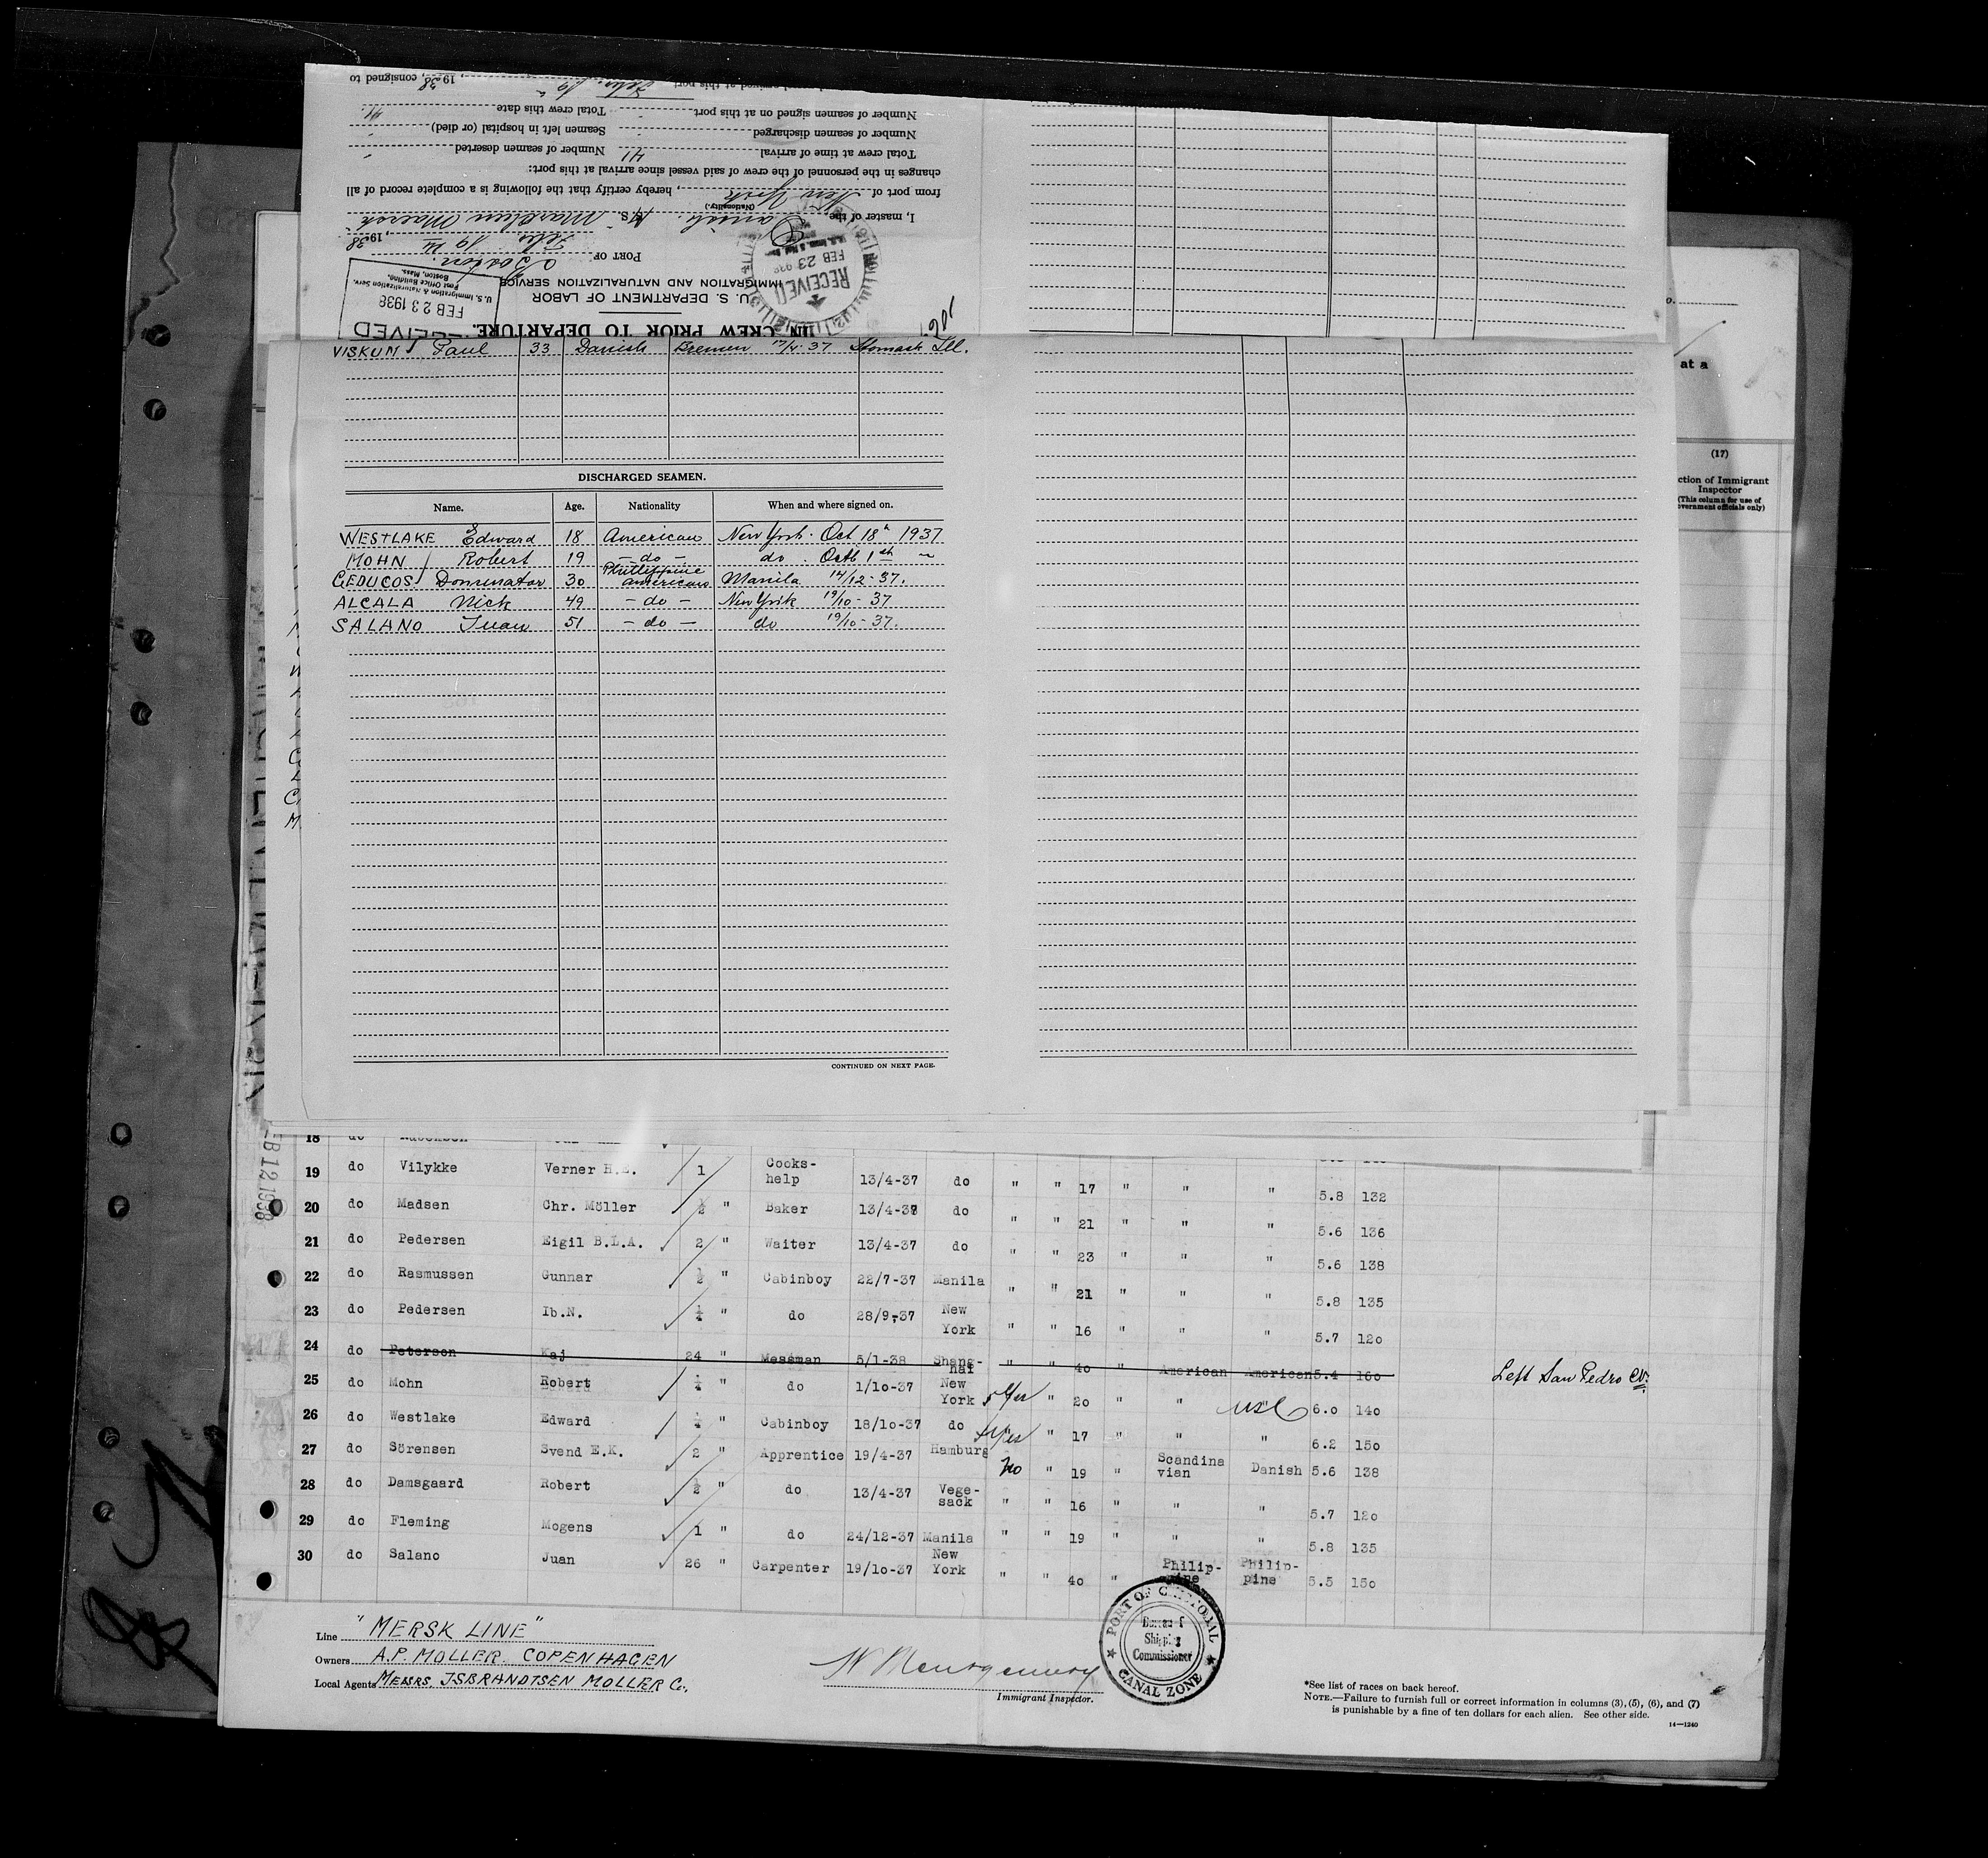 consigned to
1938
Total crew this date 41
Number of seamen signed on at this port
Seamen left in hospital (or died)
Number of seamen discharged
Number of seamen deserted
Total crew at time of arrival 41
changes in the personnel of the crew of said vessel since arrival at this port:
from port of New York, hereby certify that the following is a complete record of all
(Nationality.)
I, master of the Danish M/S. Marchen Maersk
PORT OF Boston. Feby 19th, 1938
IMMIGRATION AND NATURALIZATION SERVICE
U. S. DEPARTMENT OF LABOR
IN CREW PRIOR TO DEPARTURE.
RECEIVED
FEB 23 1938
U. S. Immigration & Naturalization Serv.
Post Office Building,
Boston, Mass.
RECEIVED
FEB 23 938
VISKUM Paul 33 Danish Bremen 17/4-37 Stomach Ill.
DISCHARGED SEAMEN.
Name. Age. Nationality When and where signed on.
WESTLAKE Edward 18 American New York. Oct 18th 1937
MOHN Robert 19 - do - do. Octb 1st "
GEDUCOS Dominator 30 Phillippine american Manila 14/12-37.
ALCALA Nick 49 - do - New York 19/10-37
SALANO Juan 51 - do - do 19/10-37.
CONTINUED ON NEXT PAGE.
at a
(17)
ction of Immigrant
Inspector
(This column for use of
overnment officials only)
EB 12 1938
18 do
19 do Vilykke Verner 1 Cooks-help 13/4-37 do " " 17 " " " 5.8 132
20 do Madsen Chr. Möller ½ " Baker 13/4-37 do " " 21 " " " 5.6 136
21 do Pedersen Eigil B.L.A. 2 " Waiter 13/4-37 do " " 23 " " " 5.6 138
22 do Rasmussen Gunnar ½ " Cabinboy 22/7-37 Manila " " 21 " " " 5.8 135
23 do Pedersen Ib.N. ¼ " do 28/9-37 New York " " 16 " " " 5.7 120
24 do Peterson Kaj 24 " Messman 5/1-38 Shang-hai " " 40 " American American 5.4 160 Left San Pedro
25 do Mohn Robert ¼ " do 1/10-37 New York Yes " 20 " " USC 6.0 140
26 do Westlake Edward ¼ " Cabinboy 18/10-37 do Yes " 17 " " " 6.2 150
27 do Sörensen Svend E.K. 2 " Apprentice 19/4-37 Hamburg No " 19 " Scandinavian Danish 5.6 138
28 do Damsgaard Robert ½ " do 13/4-37 Vege-sack " " 16 " " " 5.7 120
29 do Fleming Mogens 1 " do 24/12-37 Manila " " 19 " " " 5.8 135
30 do Salano Juan 26 " Carpenter 19/10-37 New York " " 40 " Philip-pine Philip-pine 5.5 150
Line "MERSK LINE"
Owners A.P. MOLLER. COPENHAGEN
Local Agents MESSRS. ISBRANDTSEN MOLLER Co.,
W Montgomery
Immigrant Inspector.
PORT OF CRISTOBAL
Bureau of
Shipping
Commissioner
CANAL ZONE
*See list of races on back hereof.
NOTE.—Failure to furnish full or correct information in columns (3), (5), (6), and (7)
is punishable by a fine of ten dollars for each alien. See other side.
14—1240